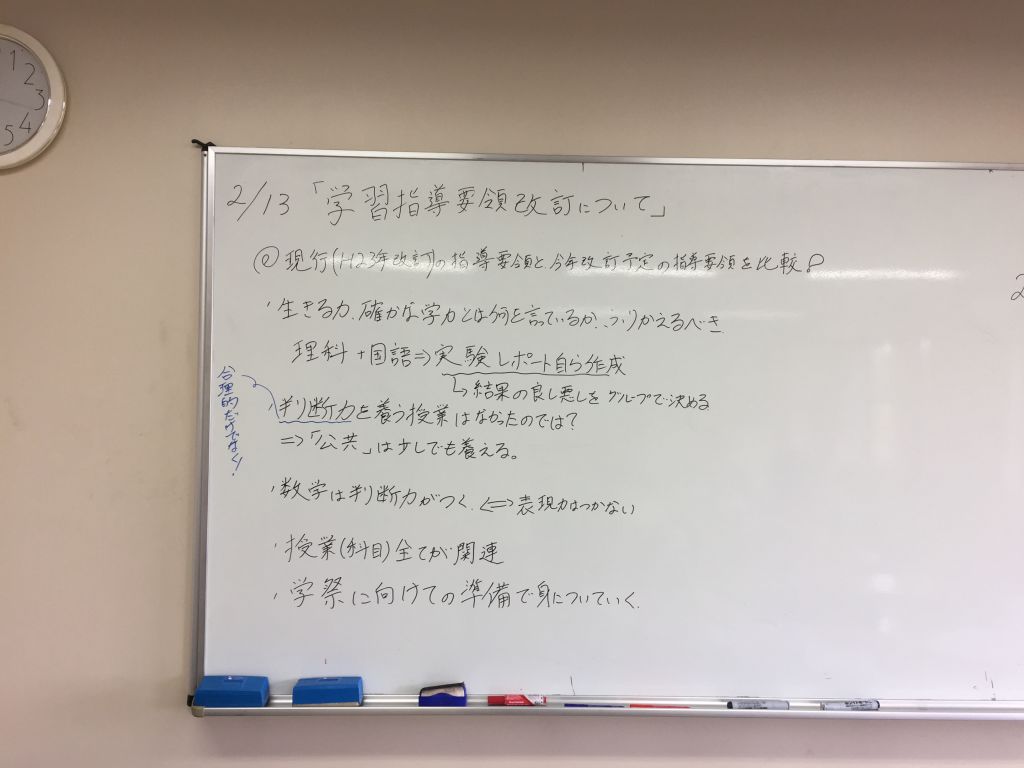 1
2
3
4
5
2/13 「学習指導要領改訂について」
@現行(H23年改訂)の指導要領と、今年改訂予定の指導要領を比較。
・生きる力、確かな学力とは何を言っているか、ふりかえるべき
理科+国語⇒実験レポート自ら作成
↳結果の良し悪しをグループで決める
合理的だけでなく!
・判断力を養う授業はなかったのでは?
⇒「公共」は少しでも養える。
・数学は判断力がつく、⇔表現力はつかない
・授業(科目)全てが関連
・学祭に向けての準備で身についていく。
2